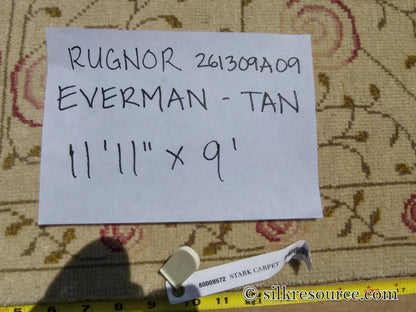 RUGNOR 261309A09
EVERMAN - TAN
11'11" x 9'
80009572 STARK CARPET
© silkresource.com